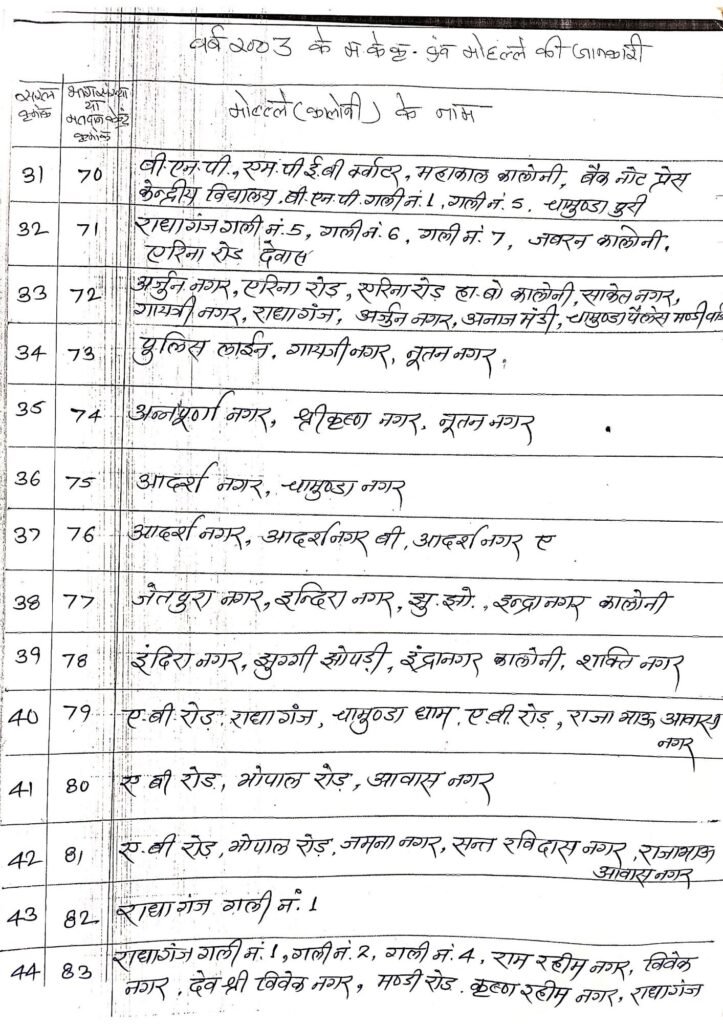 वर्ष 2003 के म.के.क्र. एवं मोहल्ले की जानकारी
सरल मतदान केन्द्र मोहल्ले (कालोनी) के नाम
क्रमांक या
क्रमांक
31 70 बी.एन.पी., एम.पी.ई.बी क्वार्टर, महाकाल कालोनी, बैंक नोट प्रेस
केन्द्रीय विद्यालय, बी.एन.पी. गली नं. 1, गली नं. 5, चामुण्डा पुरी
32 71 राधागंज गली नं. 5, गली नं. 6, गली नं. 7, जवरन कालोनी,
एरिना रोड देवास
33 72 अर्जुन नगर, एरिना रोड, एरिना रोड हा.बो कालोनी, साकेत नगर,
गायत्री नगर, राधागंज, अर्जुन नगर, अनाज मंडी, चामुण्डा पैलेस मण्डी
34 73 पुलिस लाईन, गायत्री नगर, नूतन नगर,
35 74 अन्नपूर्णा नगर, श्रीकृष्ण नगर, नूतन नगर
36 75 आदर्श नगर, चामुण्डा नगर
37 76 आदर्श नगर, आदर्श नगर बी, आदर्श नगर ए
38 77 जेतपुरा नगर, इन्दिरा नगर, झु.झो., इन्द्रानगर कालोनी
39 78 इंदिरा नगर, झुग्गी झोपड़ी, इंद्रानगर कालोनी, शक्ति नगर
40 79 ए.बी. रोड़, राधागंज, चामुण्डा धाम, ए.बी. रोड़, राजा भाऊ आवास
नगर
41 80 ए बी रोड़, भोपाल रोड़, आवास नगर
42 81 ए.बी रोड़, भोपाल रोड़, जमना नगर, सन्त रविदास नगर, राजाभाऊ
आवास नगर
43 82 राधागंज गली नं. 1
44 83 राधागंज गली नं. 1, गली नं. 2, गली नं. 4, राम रहीम नगर, विवेक
नगर, देव श्री विवेक नगर, मण्डी रोड, कृष्ण रहीम नगर, राधागंज